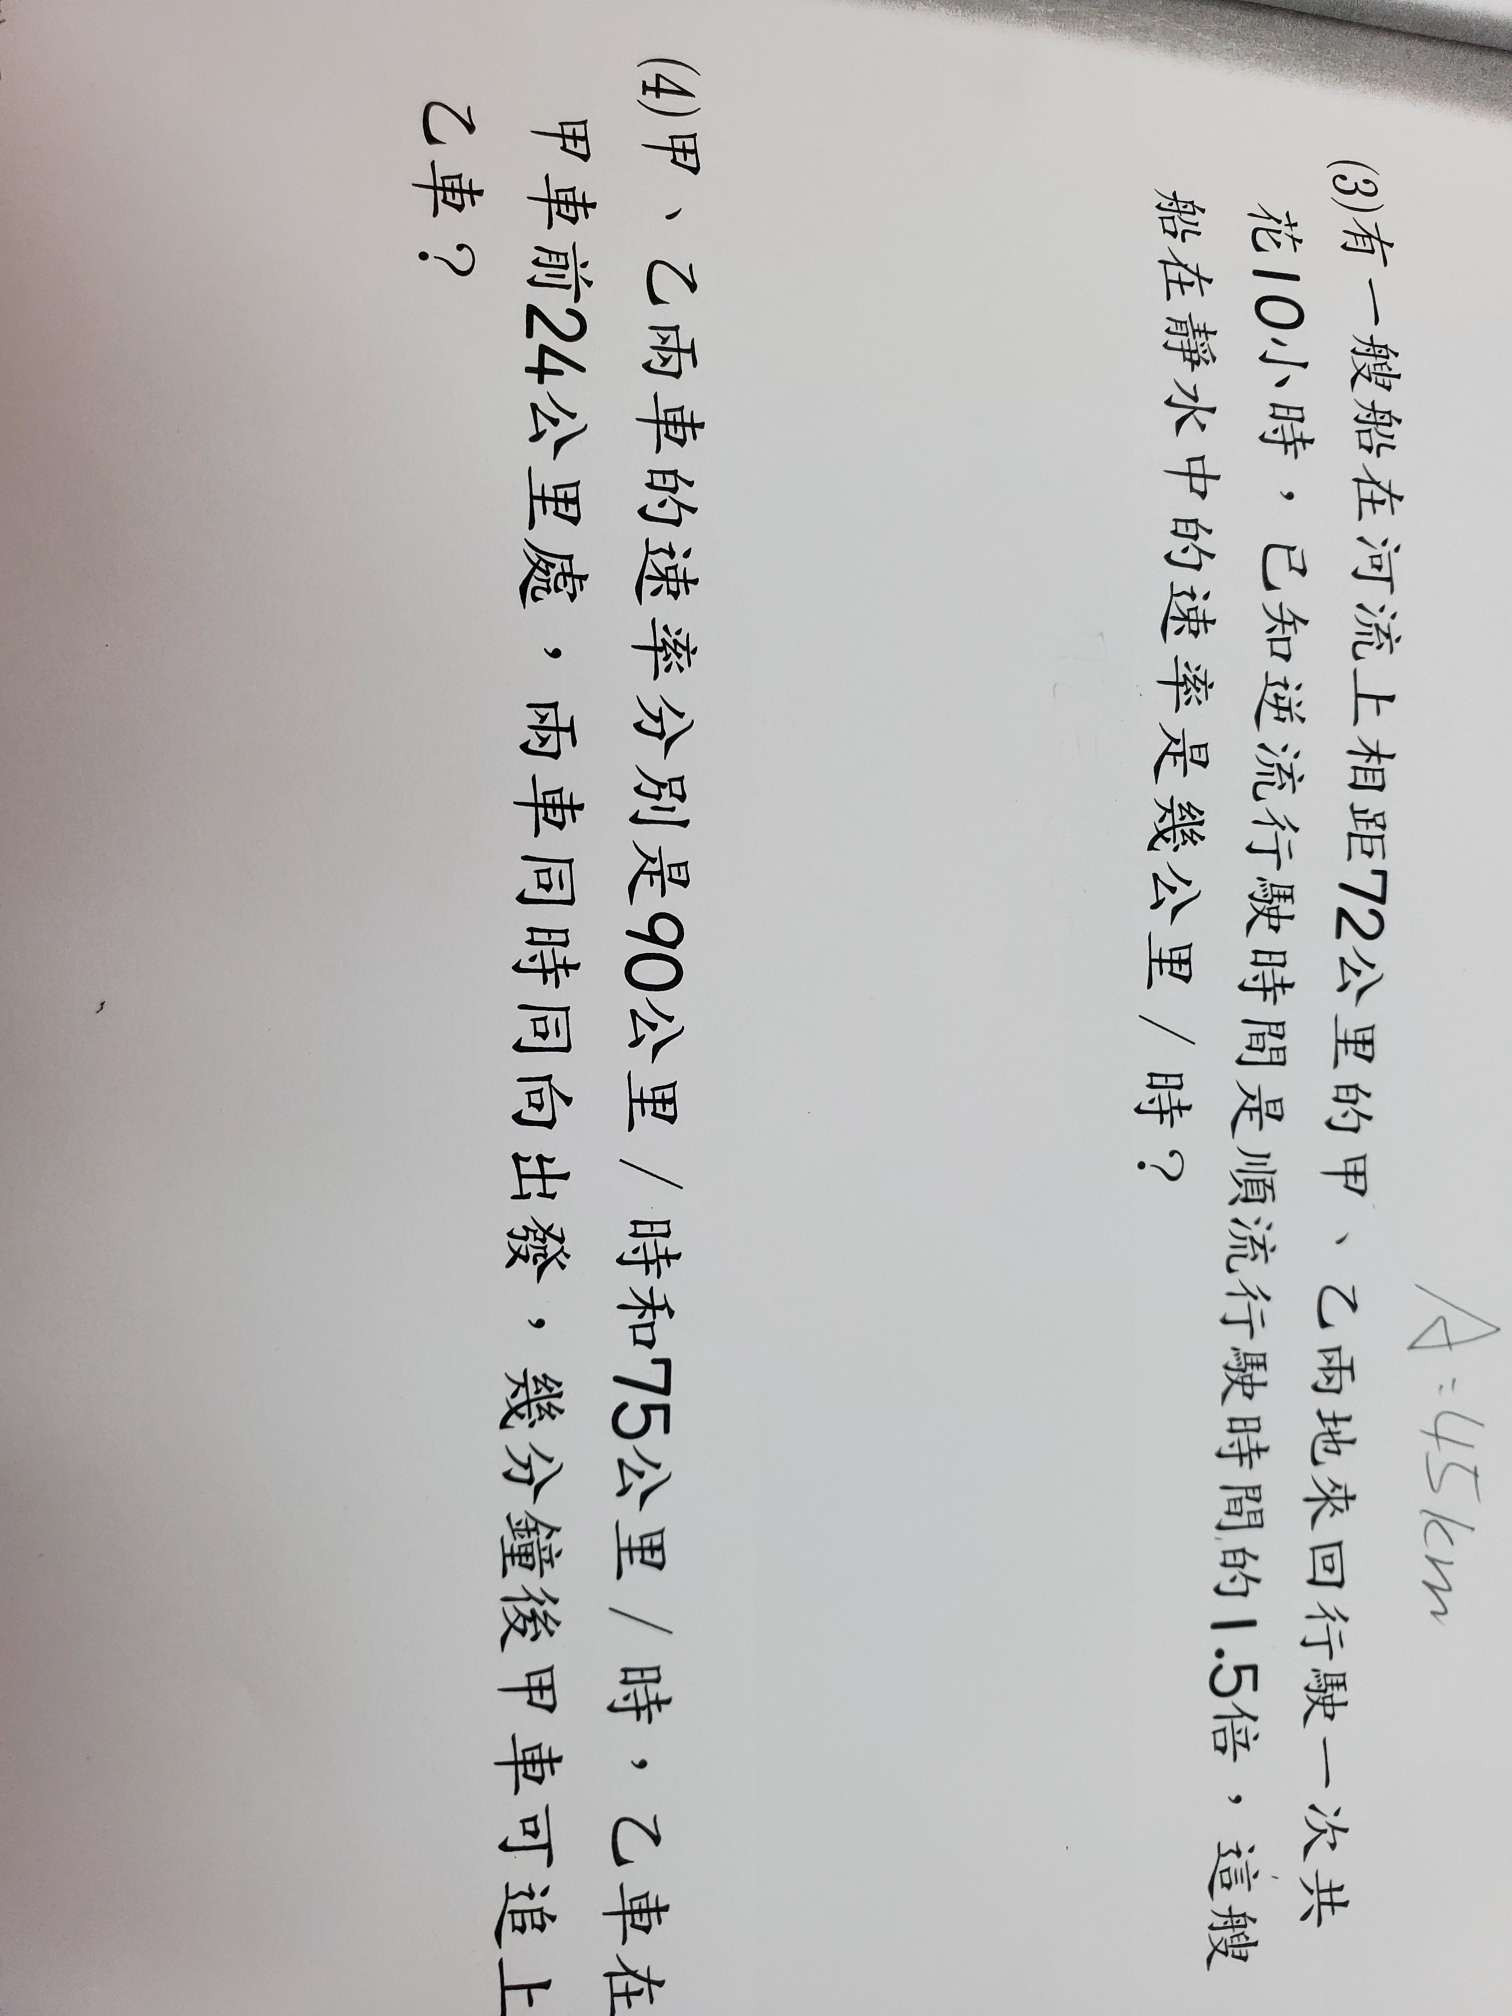 A:45km
(3)有一艘船在河流上相距72公里的甲、乙兩地來回行駛一次共
花10小時，已知逆流行駛時間是順流行駛時間的1.5倍，這艘
船在靜水中的速率是幾公里/時？
(4)甲、乙兩車的速率分別是90公里/時和75公里/時，乙車在
甲車前24公里處，兩車同時同向出發，幾分鐘後甲車可追上
乙車？